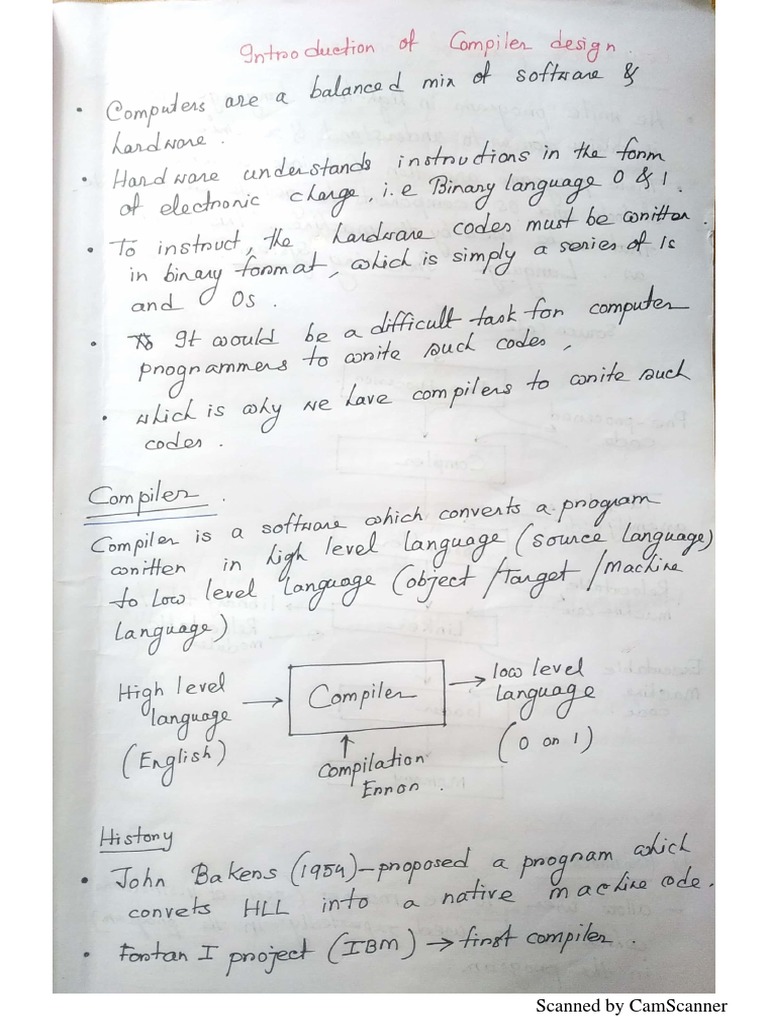 Introduction of Compiler design.
• Computers are a balanced mix of software &
hardware.
• Hardware understands instructions in the form
of electronic charge, i.e Binary language 0 & 1.
• To instruct, the hardware codes must be written
in binary format, which is simply a series of 1s
and 0s.
• It would be a difficult task for computer
programmers to write such codes,
• which is why we have compilers to write such
codes.
Compiler.
Compiler is a software which converts a program
written in high level language (source language)
to low level language (object/Target/machine
language)
High level
language
(English)
Compiler
Compilation
Error.
low level
language
(0 or 1)
History
• John Bakens (1954)-proposed a program which
convets HLL into a native machine code.
• Fortan I project (IBM) → first compiler.
Scanned by CamScanner